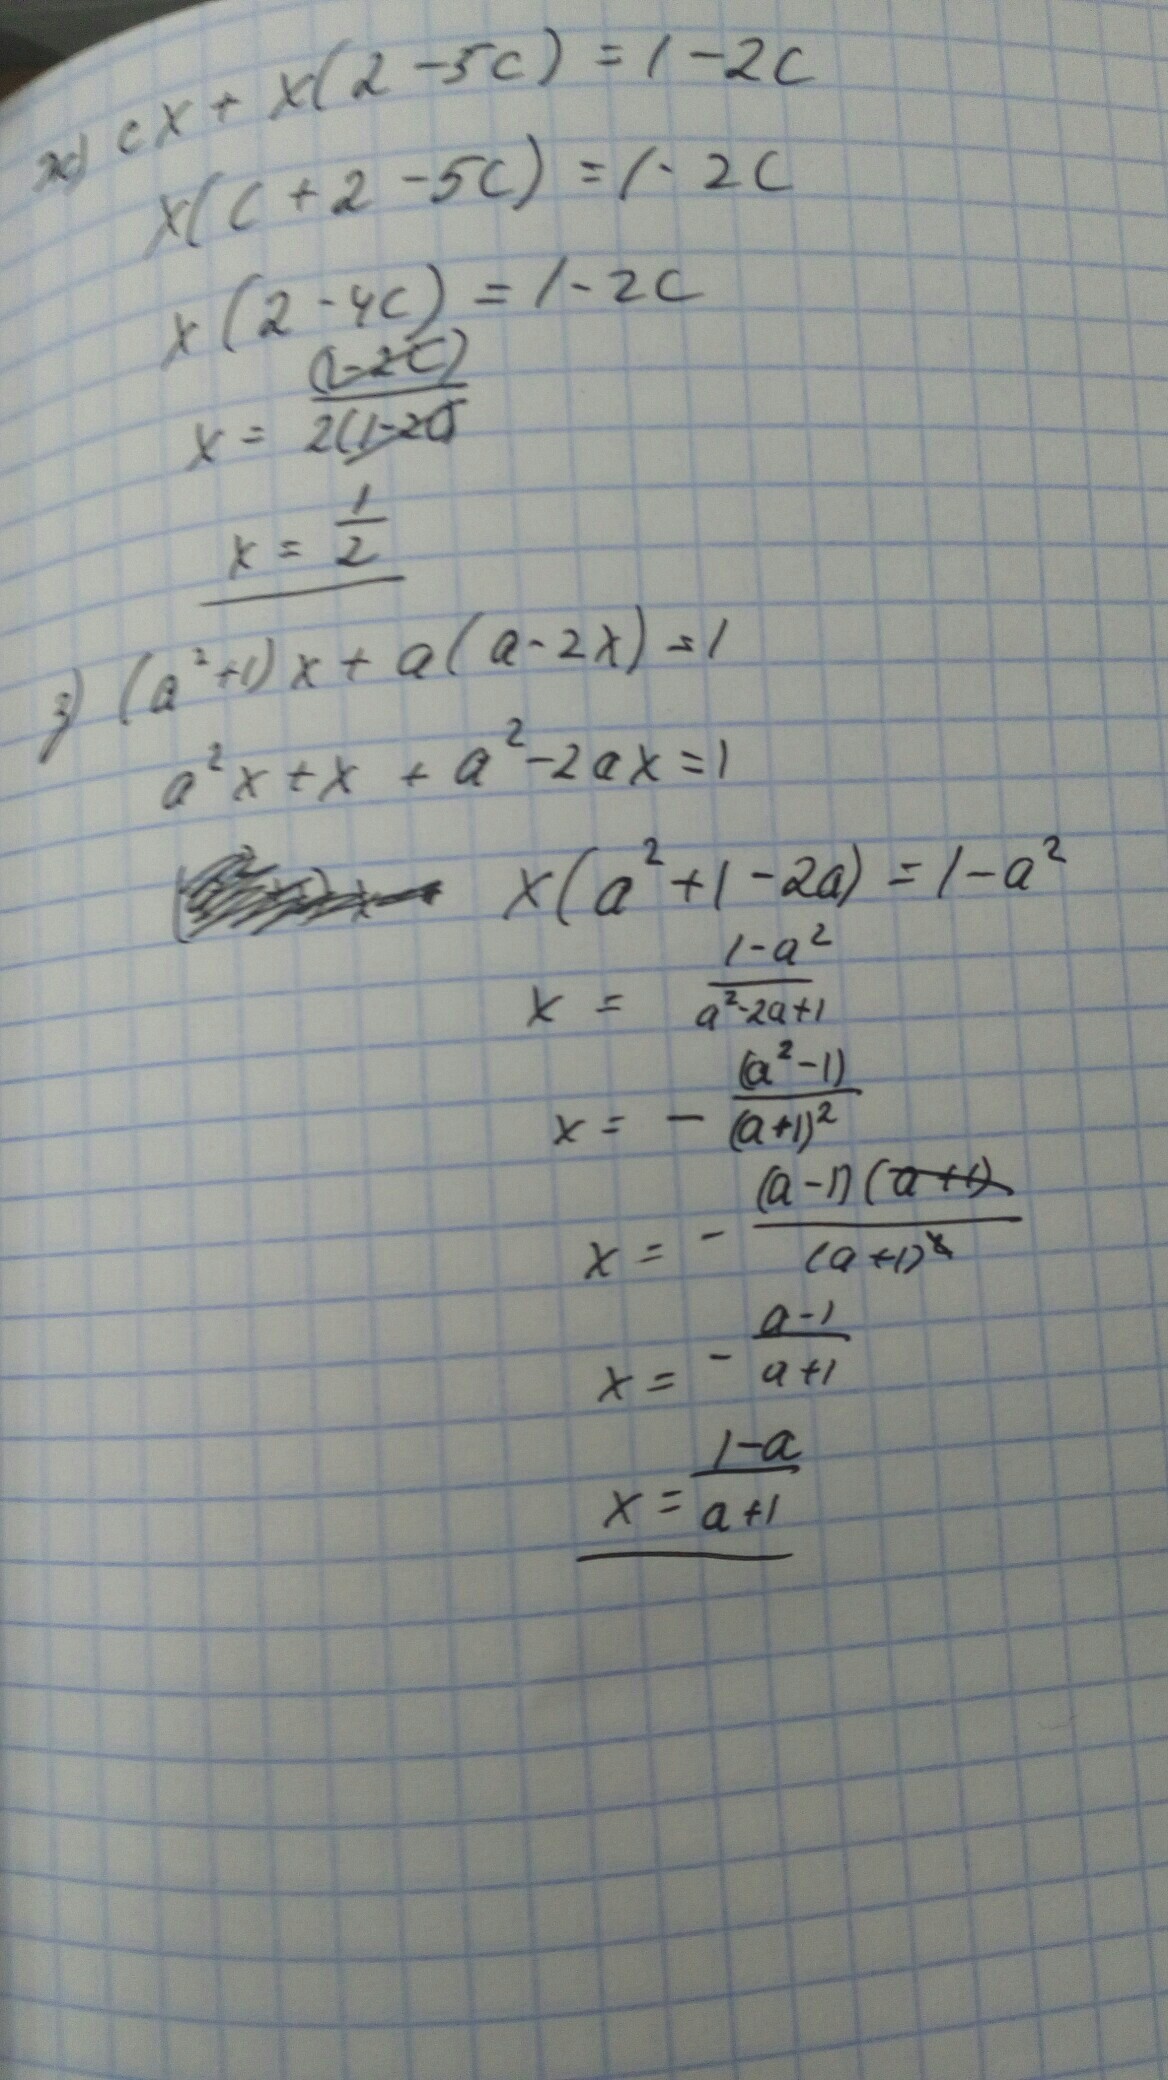 ж) cx + x(2 - 5c) = 1 - 2c
x(c + 2 - 5c) = 1 - 2c
x(2 - 4c) = 1 - 2c
x = (1-2c)/2(1-2c)
x = 1/2
з) (a²+1)x + a(a-2x) = 1
a²x + x + a² - 2ax = 1
x(a² + 1 - 2a) = 1 - a²
x = 1-a²/a²-2a+1
x = - (a²-1)/(a+1)²
x = - (a-1)(a+1)/(a+1)²
x = - a-1/a+1
x = 1-a/a+1